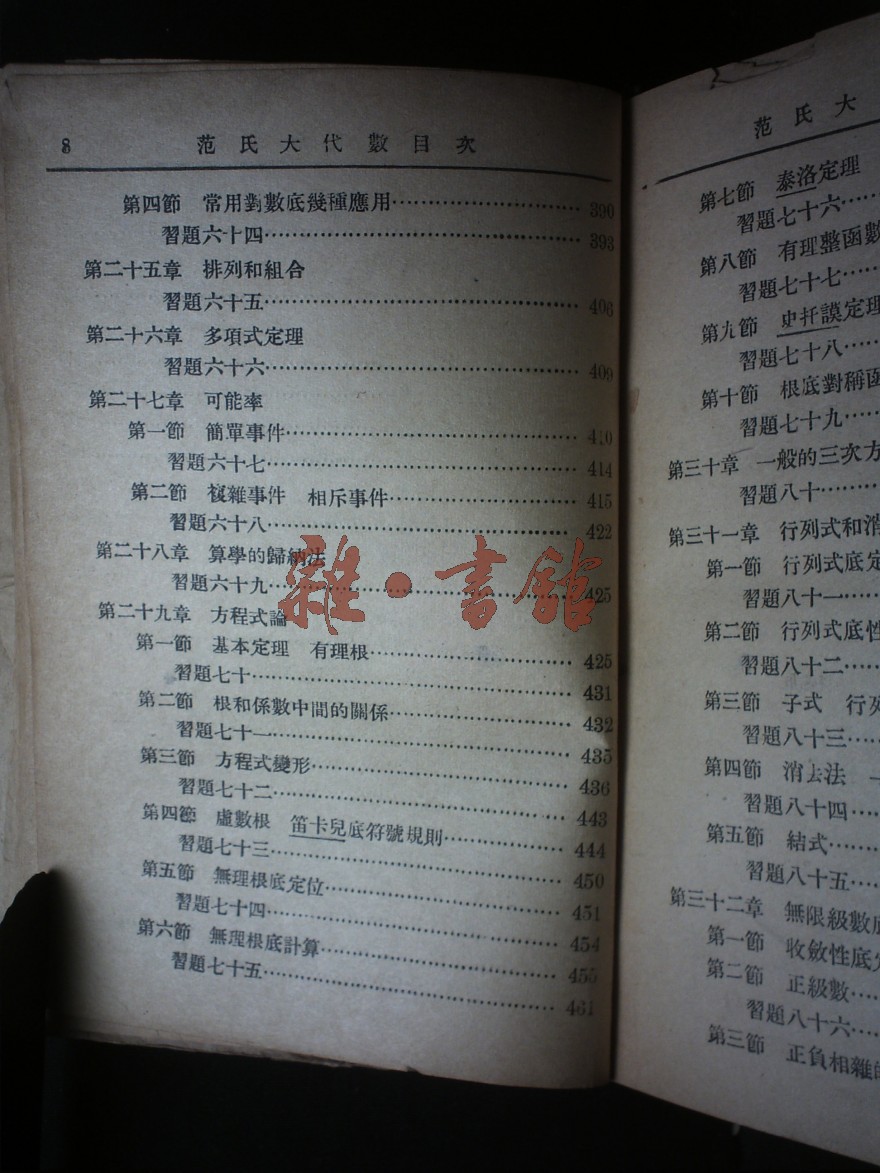 8 范氏大代數目次
第四節 常用對數底幾種應用 390
習題六十四 393
第二十五章 排列和組合
習題六十五 406
第二十六章 多項式定理
習題六十六 409
第二十七章 可能率
第一節 簡單事件 410
習題六十七 414
第二節 複雜事件 相斥事件 415
習題六十八 422
第二十八章 算學的歸納法
習題六十九 425
第二十九章 方程式論
第一節 基本定理 有理根 425
習題七十 431
第二節 根和係數中間的關係 432
習題七十一 435
第三節 方程式變形 436
習題七十二 443
第四節 虛數根 笛卡兒底符號規則 444
習題七十三 450
第五節 無理根底定位 451
習題七十四 454
第六節 無理根底計算 455
習題七十五 461
雜·書館
范氏大
第七節 泰洛定理
習題七十六
第八節 有理整函數
習題七十七
第九節 史托謨定理
習題七十八
第十節 根底對稱函
習題七十九
第三十章 一般的三次方
習題八十
第三十一章 行列式和消
第一節 行列式底定
習題八十一
第二節 行列式底性
習題八十二
第三節 子式 行列
習題八十三
第四節 消去法
習題八十四
第五節 結式
習題八十五
第三十二章 無限級數底
第一節 收斂性底定
第二節 正級數
習題八十六
第三節 正負相雜的